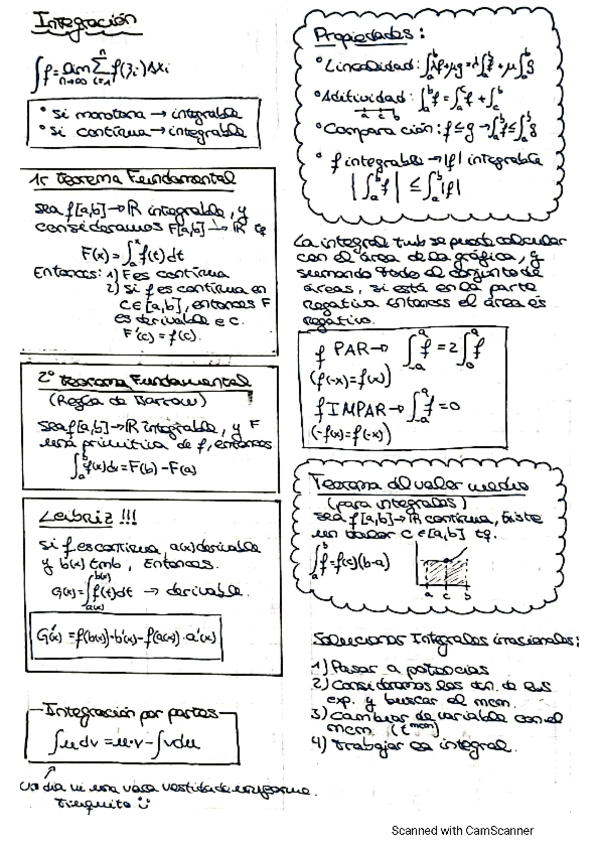 Integración
∫f = lim n→∞ Σ i=1 n f(ξi) Δxi
• si monotona → integrable
• si continua → integrable
1r Teorema Fundamental
sea f[a,b]→ℝ integrable, y
consideramos F[a,b]→ℝ tq
F(x) = ∫ₐˣ f(t) dt
Entonces: 1) F es continua
2) si f es continua en
c∈[a,b], entonces F
es derivable e c.
F'(c) = f(c).
2º Teorema Fundamental
(Regla de Barrow)
sea f[a,b]→ℝ integrable, y F
una primitiva de f, entonces
∫ₐᵇ f(x)dx = F(b) - F(a)
Leibniz !!!
si f es continua, a(x) derivable
y b(x) tmb, Entonces.
G(x) = ∫ a(x) b(x) f(t)dt → derivable.
G'(x) = f(b(x))·b'(x) - f(a(x))·a'(x)
Integración por partes
∫u dv = u·v - ∫v du
un dia vi una vaca vestida de uniforme.
Truquito
Propiedades:
• Linealidad: ∫ₐᵇ λf+μg = λ∫ₐᵇ f + μ∫ₐᵇ g
• Aditividad: ∫ₐᵇ f = ∫ₐᶜ f + ∫ᶜᵇ
a c b
• Comparación: f ≤ g → ∫ₐᵇ f ≤ ∫ₐᵇ g
• f integrable → |f| integrable
|∫ₐᵇ f| ≤ ∫ₐᵇ |f|
La integral tmb se puede calcular
con el área de la gráfica, y
sumando todo el conjunto de
áreas, si está en la parte
negativa entonces el área es
negativo.
f PAR → ∫₋ₐᵃ f = 2∫₀ᵃ f
(f(-x) = f(x))
f IMPAR → ∫₋ₐᵃ f = 0
(-f(x) = f(-x))
Teorema del valor medio
(para integrales)
sea f[a,b]→ℝ continua, Existe
un valor c∈[a,b] tq.
∫ₐᵇ f = f(c)(b-a)
a c b
Solucionar Integrales irracionales:
1) Pasar a potencias
2) Consideramos los den. de sus
exp. y buscar el mcm.
3) Cambiar de variable con el
mcm (t^mcm)
4) Trabajar la integral.
Scanned with CamScanner